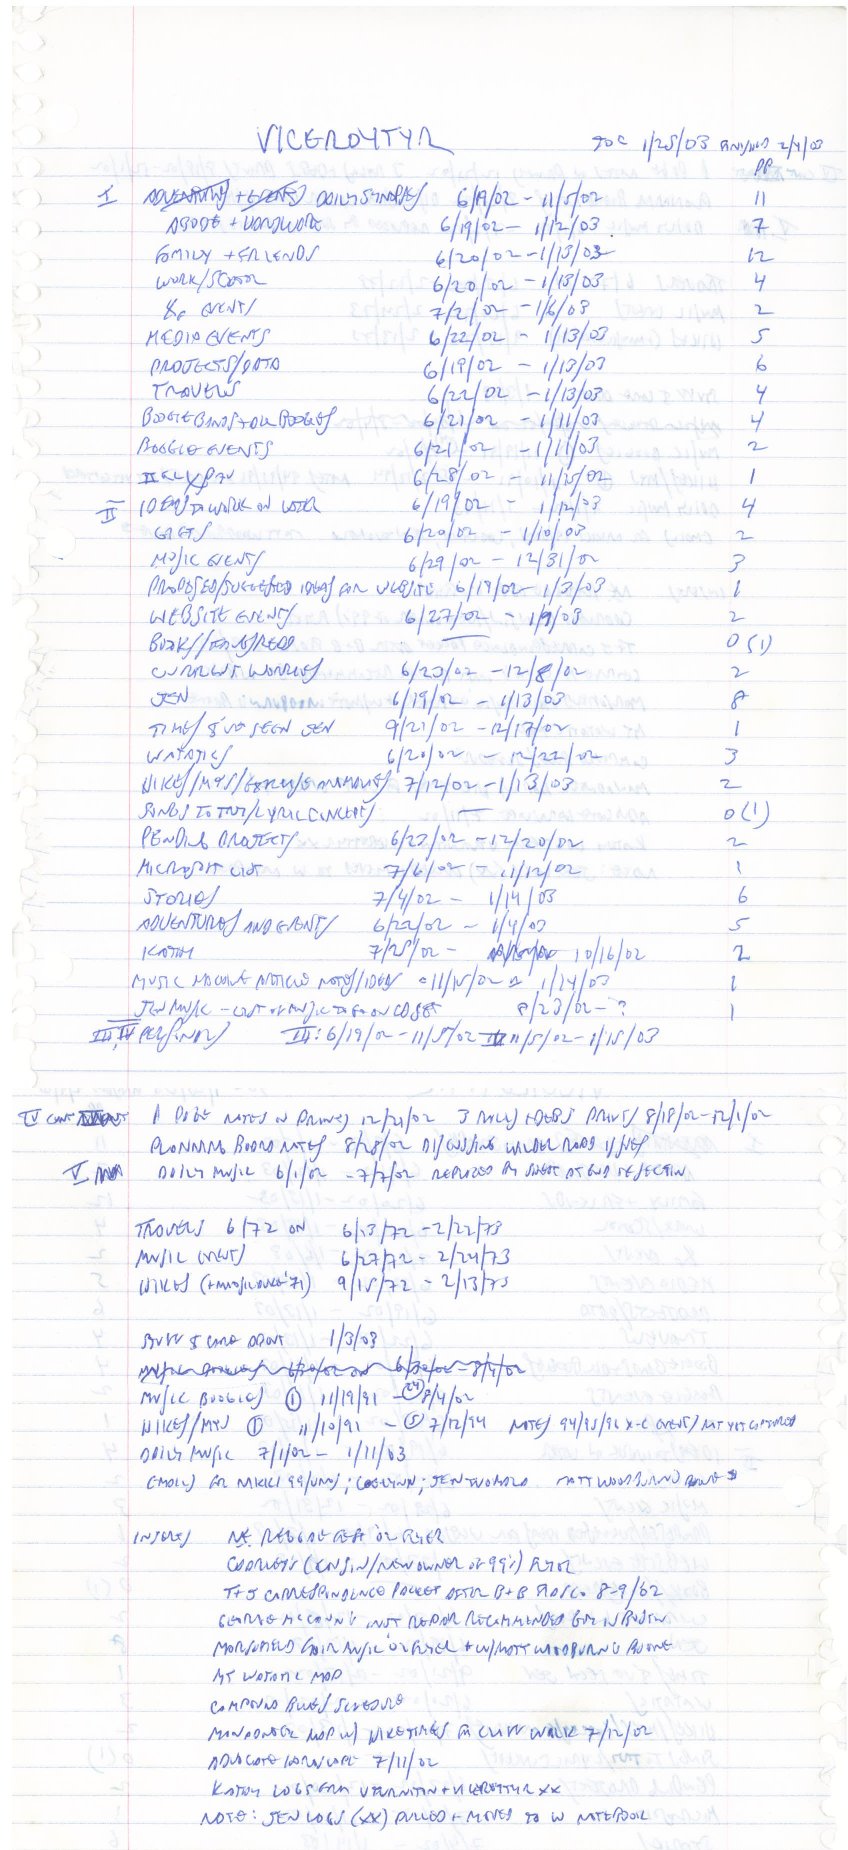 VICEROYTYR TOC 1/25/03 FINISHED 2/4/03
PP
I ADVENTURES + EVENTS DAILY SYNOPSES 6/19/02 - 11/5/02 11
ABODE + YARDWORK 6/19/02 - 1/12/03 7
FAMILY + FRIENDS 6/20/02 - 1/13/03 12
WORK/ 6/20/02 - 1/13/03 4
EVENTS 7/2/02 - 1/6/03 2
MEDIA EVENTS 6/22/02 - 1/13/03 5
PROJECTS/DATA 6/19/02 - 1/13/03 6
TRAVELS 6/22/02 - 1/13/03 4
BOOGIE BANDS + OUR BOOGIES 6/21/02 - 1/11/03 4
BOOGIE EVENTS 6/21/02 - 1/11/03 2
6/28/02 - 11/25/02 1
II IDEAS TO WORK ON LATER 6/19/02 - 1/12/03 4
6/20/02 - 1/10/03 2
MUSIC EVENTS 6/29/02 - 12/31/02 3
PROPOSED/SUGGESTED IDEAS FOR WEBSITE 6/19/02 - 1/3/03 1
WEBSITE EVENTS 6/27/02 - 1/9/03 2
BOOKS/ READ — 0 (1)
CURRENT WORRIES 6/23/02 - 12/8/02 2
JEN 6/19/02 - 1/13/03 8
TIMES I'VE SEEN JEN 9/21/02 - 12/17/02 1
WATATICS 6/20/02 - 12/22/02 3
HIKES/MTS/ 7/12/02 - 1/13/03 2
SONGS TO /LYRIC CONCEPTS — 0 (1)
PENDING PROJECTS 6/23/02 - 12/20/02 2
MICROSOFT LIST 7/6/02 - 11/12/02 1
STORIES 7/4/02 - 1/14/03 6
ADVENTURES AND EVENTS 6/22/02 - 1/4/03 5
KATHY 7/25/02 - 10/16/02 2
MUSIC MACHINE NOTES/IDEAS 11/15/02 1/14/03 1
JEN MUSIC - LIST OF MUSIC TO GO ON CD SET 8/23/02 - ? 1
III, IV PERSONALS III: 6/19/02 - 11/5/02 IV 11/5/02 - 1/15/03
IV CONT 1 PAGE NOTES 12/21/02 3 8/18/02 - 12/1/02
PLANNING BOARD NOTES 8/28/02 DISCUSSING WILDER ROAD ISSUES
V DAILY MUSIC 6/1/02 - 7/7/02 REPLACED BY SHEET AT END OF SECTION
TRAVELS 6/72 ON 6/13/72 - 2/22/73
MUSIC EVENTS 6/27/72 - 2/24/73
HIKES 9/15/72 - 2/13/73
1/3/03
MUSIC BOOGIES ① 11/19/91 - 24 8/4/02
HIKES/MTS ① 11/10/91 - ⑤ 7/12/94 NOTES 94/95/96 X-C EVENTS NOT YET COMPUTED
DAILY MUSIC 7/1/02 - 1/11/03
EMAILS FOR NIKKI; ; JEN MATT WOODBURN'S PHONE #
INSERTS NE REGGAE FEST '02 FLYER
(COUSIN/NEW OWNER OF 99's) FLYER
T + J CORRESPONDENCE PACKET AFTER B + B 8-9/02
GEORGE McCANN'S INST REPAIR RECOMMENDED GUY IN BOSTON
MANSFIELD FAIR MUSIC '02 FLYER + W/MATT WOODBURN'S PHONE
MT WATATIC MAP
COMPOUND BLUES SCHEDULE
MONADNOCK MAP W/ HIKE TIMES FOR CLIFF WALK 7/12/02
ADVOCATE HOROSCOPE 7/11/02
KATHY LOGS FROM + VICEROYTYR XX
NOTE: JEN LOGS (XX) PULLED + MOVED TO W NOTEBOOK